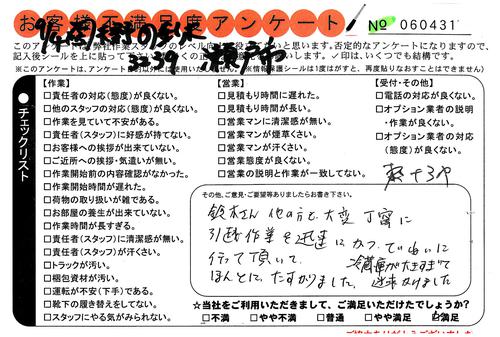 お客様不満足度アンケート!
№ 060431
このアンケートは弊社作業
否定的なアンケートになりますので、
記入後シールを上に貼って
✓印は、いくつでも結構です。
※このアンケートは、アンケート
※情報保護シールは1度はがすと、再度貼りなおすことはできません
チェックリスト
【作業】
□責任者の対応(態度)が良くない。
□他のスタッフの対応(態度)が良くない。
□作業を見ていて不安がある。
□責任者(スタッフ)に好感が持てない。
□お客様への挨拶が出来ていない。
□ご近所への挨拶・気遣いが無い。
□作業開始前の内容確認がなかった。
□作業開始時間が遅れた。
□荷物の取り扱いが雑である。
□お部屋の養生が出来ていない。
□作業時間が長すぎる。
□責任者(スタッフ)に清潔感が無い。
□責任者(スタッフ)が汗くさい。
□トラックが汚い。
□梱包資材が汚い。
□運転が不安(下手)である。
□靴下の履き替えをしてない。
□スタッフにやる気がみられない。
【営業】
□見積もり時間に遅れた。
□見積もり時間が長い。
□営業マンに清潔感が無い。
□営業マンが煙草くさい。
□営業マンが汗くさい。
□営業態度が良くない。
□営業の説明と作業が一致してない。
【受付・その他】
□電話の対応が良くない。
□オプション業者の説明
・作業が良くない。
□オプション業者の対応
(態度)が良くない。
その他、ご意見・ご要望等ありましたらお書き下さい。
鈴木さん 他の方も 大変 丁寧に
引越作業を迅速に かつ ていねいに
行って頂いて、
冷蔵庫が大きすぎて
ほんとに、たすかりました。
☆当社をご利用いただきまして、ご満足いただけたでしょうか?
□不満 □やや不満 □普通 □やや満足 ☑満足